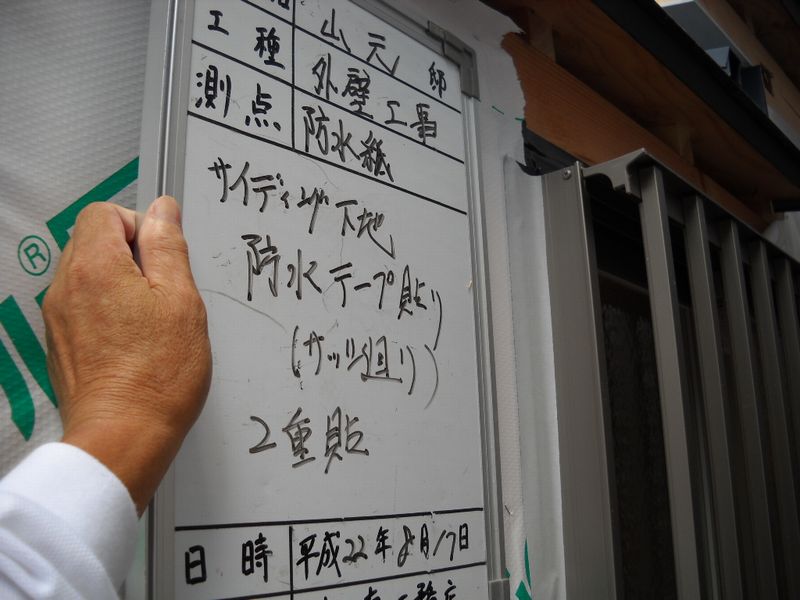 山元邸
工種 外壁工事
測点 防水紙
サイディング下地
防水テープ貼り
(サッシ廻り)
2重貼
日時 平成22年8月17日
®